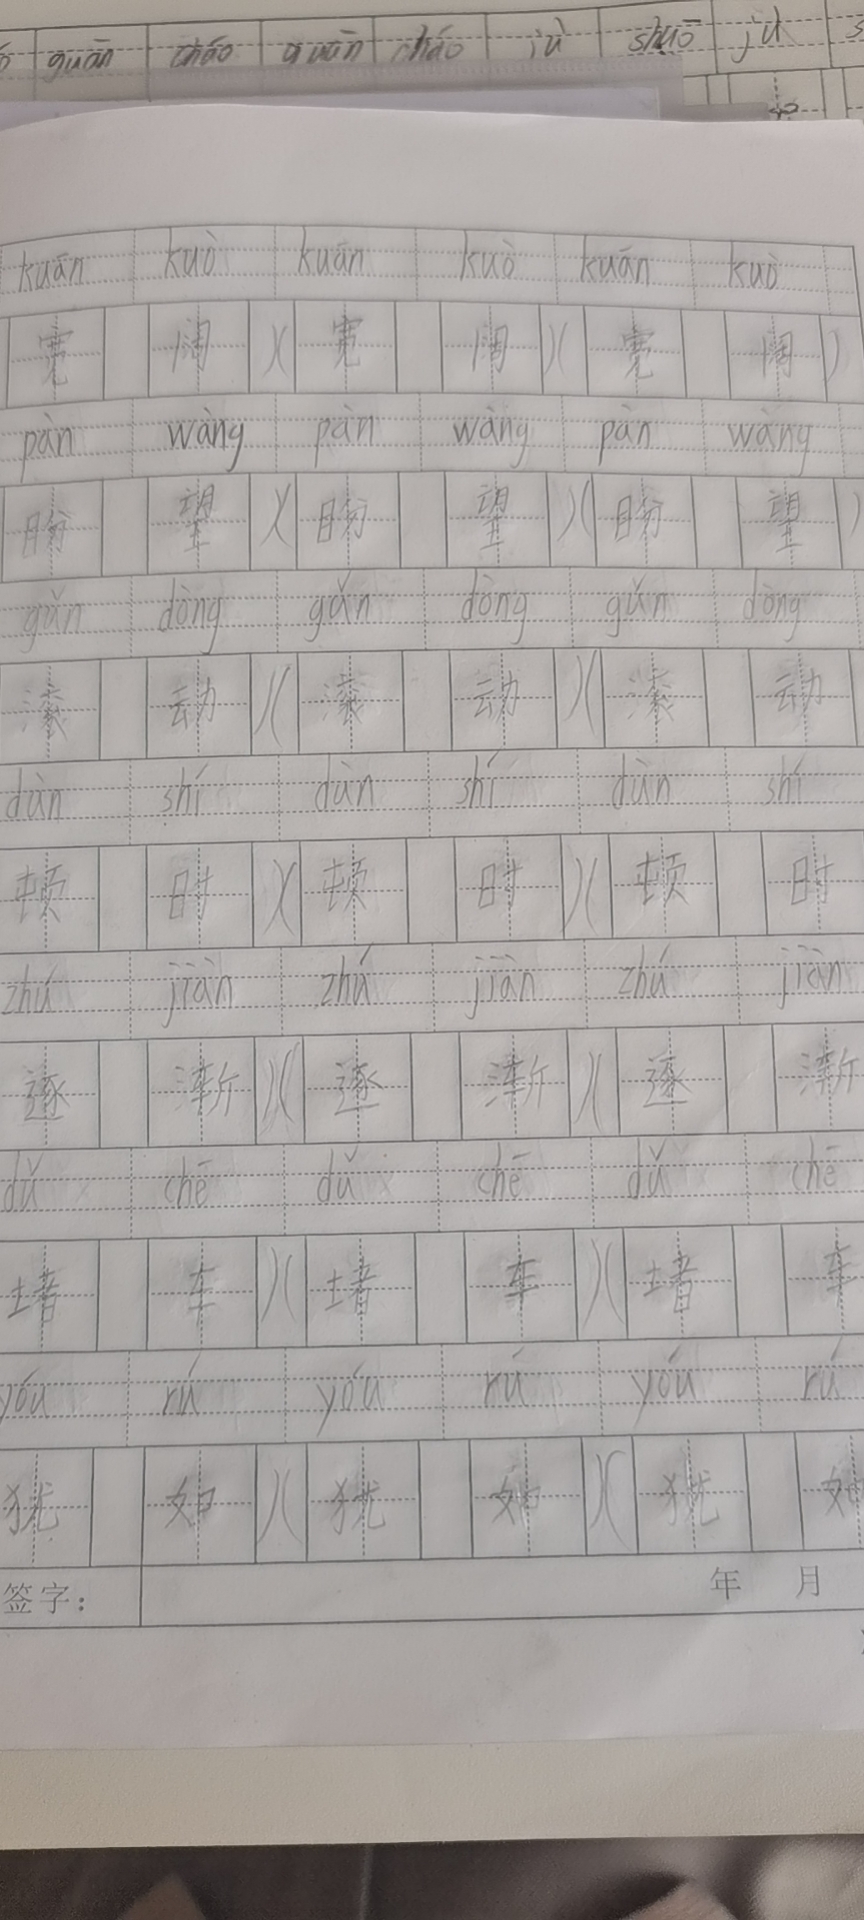 guān cháo guān cháo jù shuō jù
kuān kuò kuān kuò kuān kuò
宽 阔 )( 宽 阔 )( 宽 阔 )
pàn wàng pàn wàng pàn wàng
盼 望 )( 盼 望 )( 盼 望 )
gǔn dòng gǔn dòng gǔn dòng
滚 动 )( 滚 动 )( 滚 动
dùn shí dùn shí dùn shí
顿 时 )( 顿 时 )( 顿 时
zhú jiàn zhú jiàn zhú jiàn
逐 渐 )( 逐 渐 )( 逐 渐
dǔ chē dǔ chē dǔ chē
堵 车 )( 堵 车 )( 堵 车
yóu rú yóu rú yóu rú
犹 如 )( 犹 如 )( 犹 如
签字： 年 月